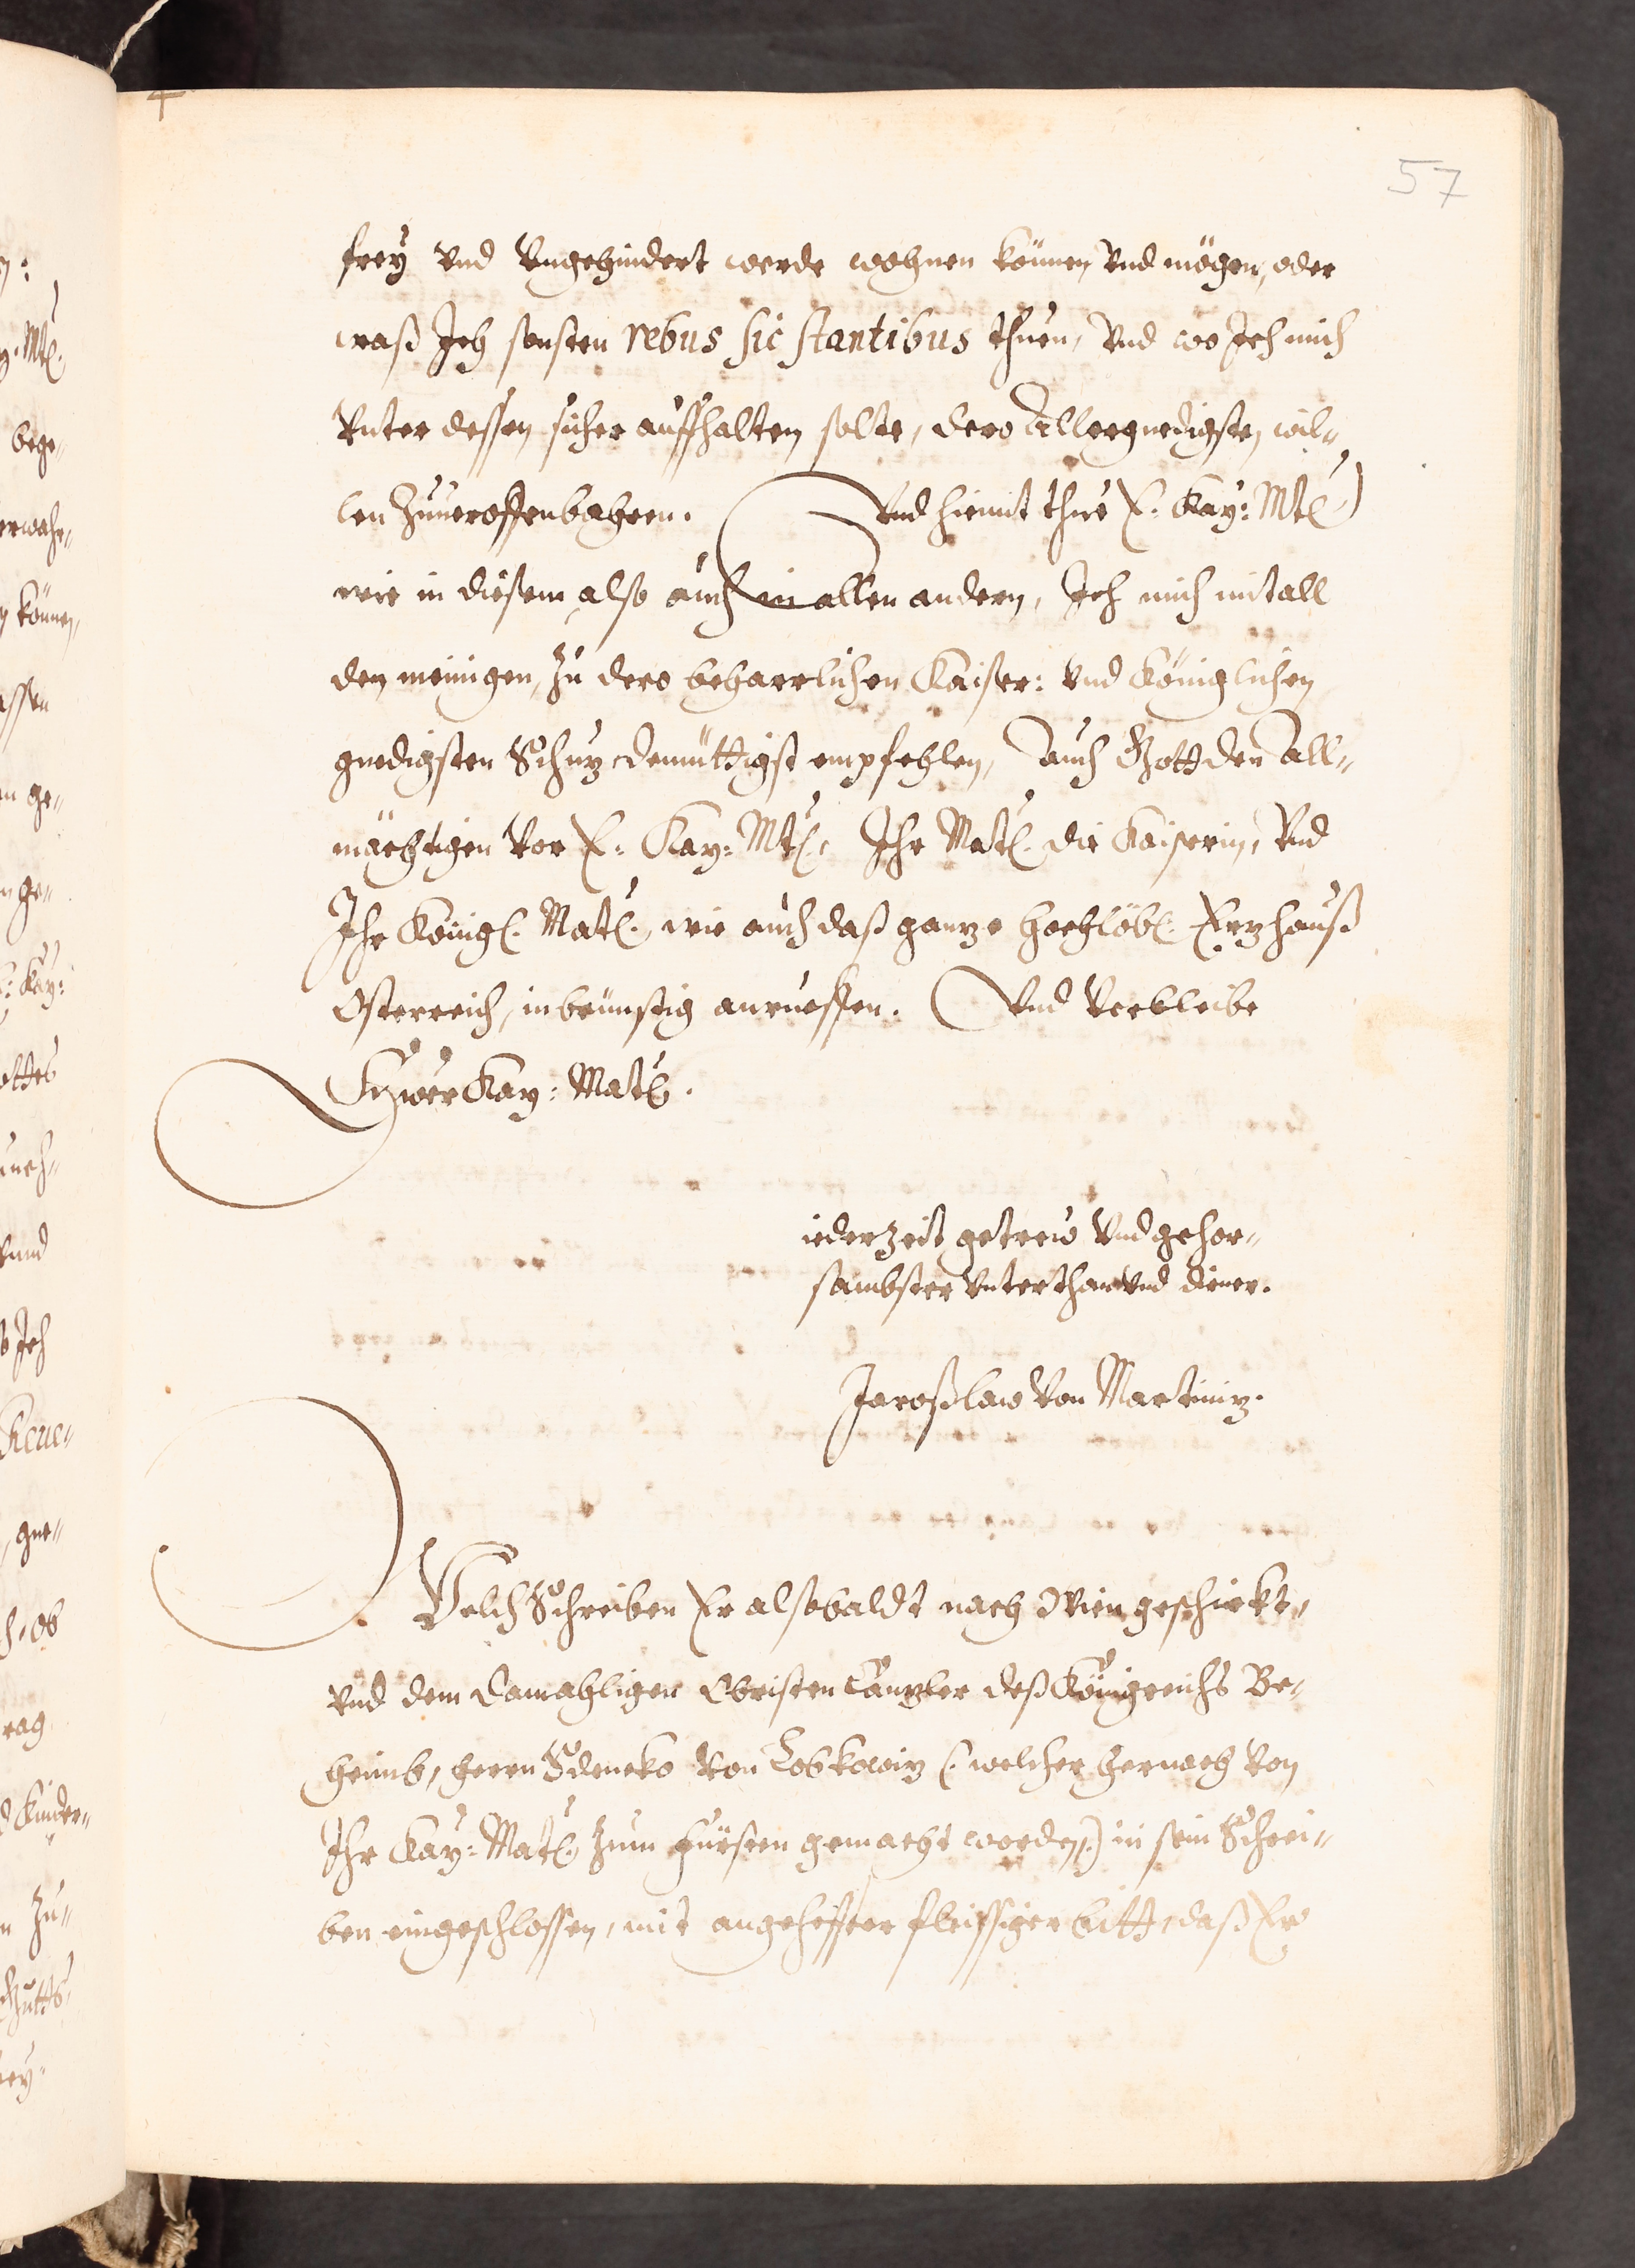 57
frey vnd vngehindert werde wohnen können, vnd mögen, oder
waß Ich sonsten rebus sic stantibus thuen, vnd wo Ich mich
vnter dessen sicher auffhalten solte, dero Allergnedigsten wil„
len zuueroffenbahren. Vnd hiemit thue E: Kay: Mtt:
wie in diesem also auch in allen andern, Ich mich mit all
den meinigen, zu dero beharrlichen Kaiser: vnd Königlichen
gnedigsten Schuz demüttigst empfehlen, Auch Gott den All„
mächtigen vor E: Kay: Mtt: Ihr Matt: die Kaiserin, vnd
Ihr Königl: Matt: wie auch daß ganze hochlöbl: Erzhauß
Osterreich, inbrünstig anrueffen. Vnd verbleibe
Ewer Kay: Matt:
iederzeit getreu vnd gehor„
sambster vnterthan vnd diener.
Jaroßlaw von Martiniz.
Welch Schreiben Er alsobaldt nach Wien geschickt,
vnd dem damahligen Obristen Canzler deß Königreichs Be„
heimb, herrn Sdenko von Lobkowiz (: welcher hernach von
Ihr Kay: Matt: zum fürsten gemacht worden :) in sein Schrei„
ben eingeschlossen, mit angehiffter fleissiger bitt, daß Er